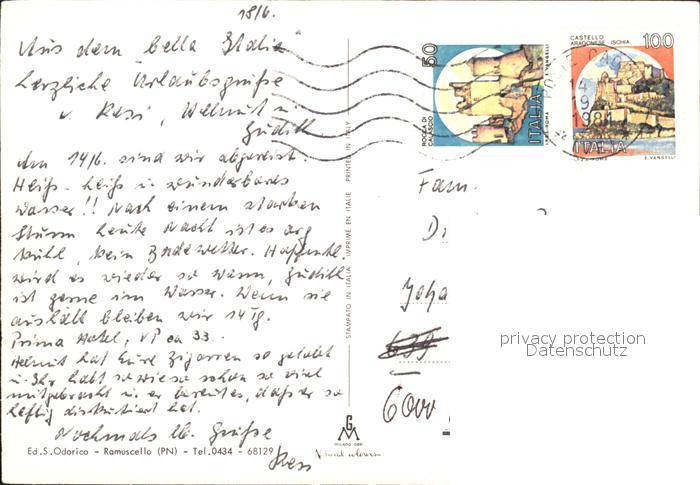 18/6.
Aus dem bella Italia
herzliche Urlaubsgrüße
v. Resi, Helmut u.
Judith
Am 14/6. sind wir abgereist.
Heiß-heiß u. wunderbares
Wasser!! Nach einem starken
Sturm heute Nacht ist es arg
kühl, kein Badewetter. Hoffentl.
wird es wieder so warm, Judith
ist gerne im Wasser. Wenn sie
aushält bleiben wir 14 Tg.
Prima Hotel, VP ca 33.-
Helmut hat Eure Zigarren so gelobt
u. Ihr habt sowieso schon so viel
mitgebracht u. er bereut es, daß er so
heftig diskutiert hat.
Nochmals lb. Grüße
Resi
Ed.S.Odorico - Ramuscello (PN) - Tel.0434 - 68129
STAMPATO IN ITALIA IMPRIMÉ EN ITALIE PRINTED IN ITALY
GM
MILANO
Natural colours
50
ROCCA DI CALASCIO
ITALIA
I.P.Z.S. ROMA
E. VANGELLI
CASTELLO
ARAGONESE - ISCHIA
100
ITALIA
I.P.Z.S. ROMA
E. VANGELLI
14
19
1981
Fam.
D
Joha
6000
privacy protection
Datenschutz